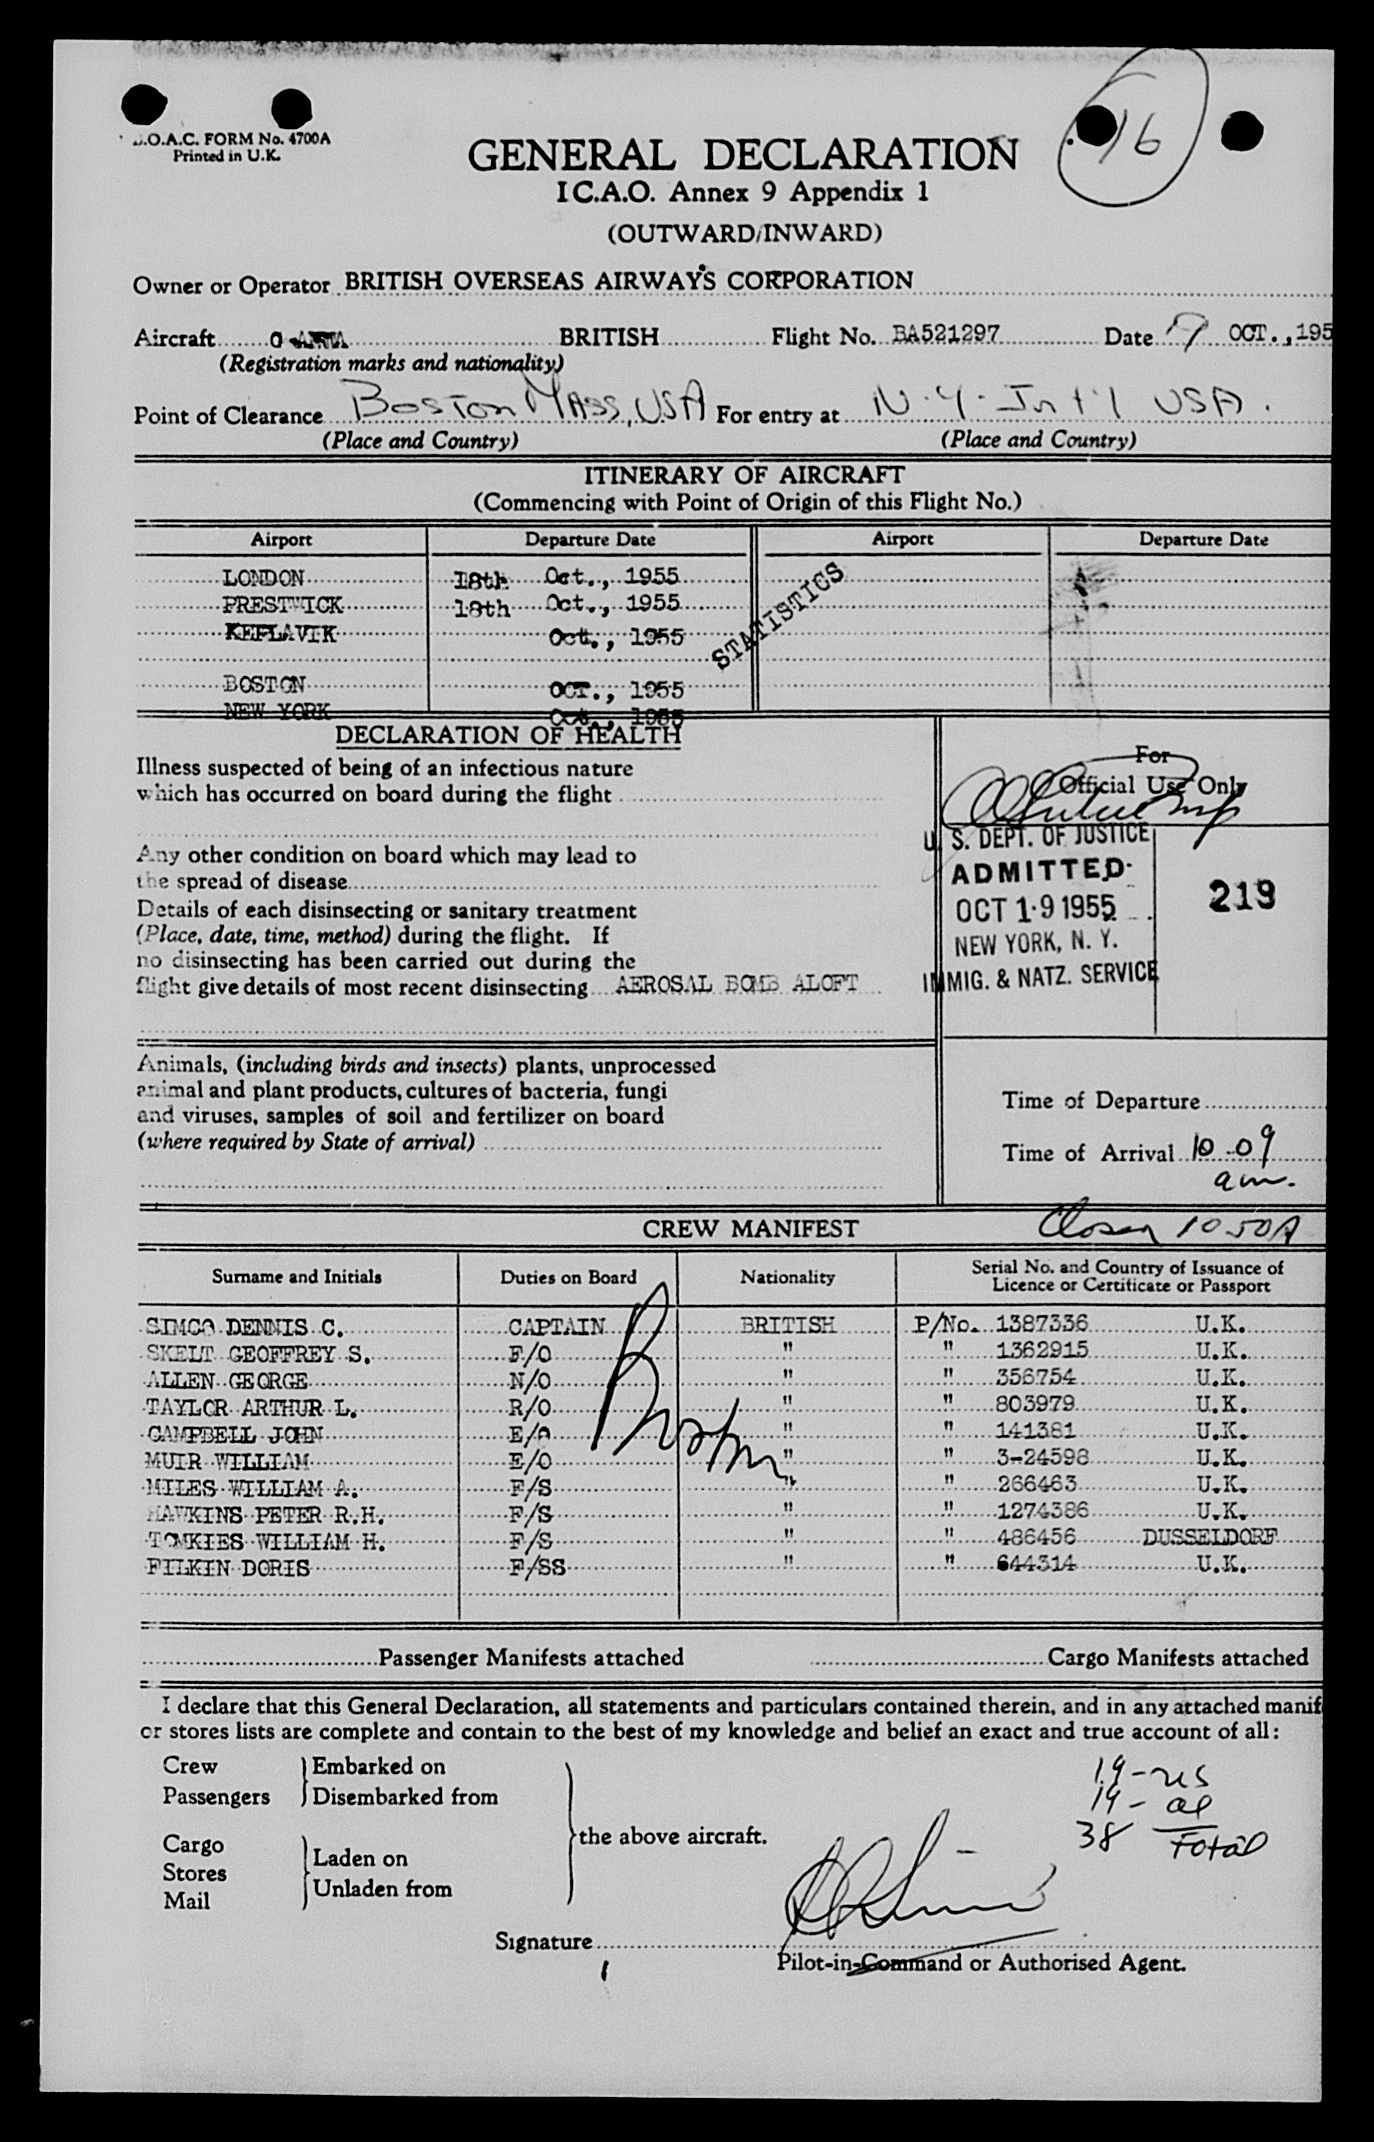 16
.O.A.C. FORM No. 4700A
Printed in U.K.
GENERAL DECLARATION
I C.A.O. Annex 9 Appendix 1
(OUTWARD/INWARD)
Owner or Operator BRITISH OVERSEAS AIRWAYS CORPORATION
Aircraft BRITISH Flight No. BA521297 Date 19 OCT., 195
(Registration marks and nationality)
Point of Clearance Boston Mass, USA For entry at N.Y. Int'l USA.
(Place and Country) (Place and Country)
ITINERARY OF AIRCRAFT
(Commencing with Point of Origin of this Flight No.)
Airport Departure Date Airport Departure Date
LONDON 18th Oct., 1955
PRESTWICK 18th Oct., 1955
KEFLAVIK Oct., 1955
STATISTICS
BOSTON OCT., 1955
NEW YORK Oct., 1955
DECLARATION OF HEALTH
Illness suspected of being of an infectious nature
which has occurred on board during the flight
Any other condition on board which may lead to
the spread of disease
Details of each disinsecting or sanitary treatment
(Place, date, time, method) during the flight. If
no disinsecting has been carried out during the
flight give details of most recent disinsecting AEROSAL BOMB ALOFT
For
Official Use Only
U. S. DEPT. OF JUSTICE
ADMITTED
OCT 19 1955
NEW YORK, N. Y.
IMMIG. & NATZ. SERVICE
219
Animals, (including birds and insects) plants, unprocessed
animal and plant products, cultures of bacteria, fungi
and viruses, samples of soil and fertilizer on board
(where required by State of arrival)
Time of Departure
Time of Arrival 10-09
am.
CREW MANIFEST Closed 10 50A
Surname and Initials Duties on Board Nationality Serial No. and Country of Issuance of
Licence or Certificate or Passport
SIMCO DENNIS C. CAPTAIN BRITISH P/No. 1387336 U.K.
SKELT GEOFFREY S. F/O " " 1362915 U.K.
ALLEN GEORGE N/O " " 356754 U.K.
TAYLOR ARTHUR L. R/O " " 803979 U.K.
CAMPBELL JOHN E/O " " 141381 U.K.
MUIR WILLIAM E/O " " 3-24598 U.K.
MILES WILLIAM A. F/S " " 266463 U.K.
HAWKINS PETER R.H. F/S " " 1274386 U.K.
TOMKIES WILLIAM H. F/S " " 486456 DUSSELDORF
FILKIN DORIS F/SS " " 644314 U.K.
Boston
Passenger Manifests attached Cargo Manifests attached
I declare that this General Declaration, all statements and particulars contained therein, and in any attached manif
or stores lists are complete and contain to the best of my knowledge and belief an exact and true account of all:
Crew Embarked on
Passengers Disembarked from
the above aircraft.
Cargo
Stores Laden on
Mail Unladen from
19 - us
19 - al
38 Total
Signature
Pilot-in-Command or Authorised Agent.